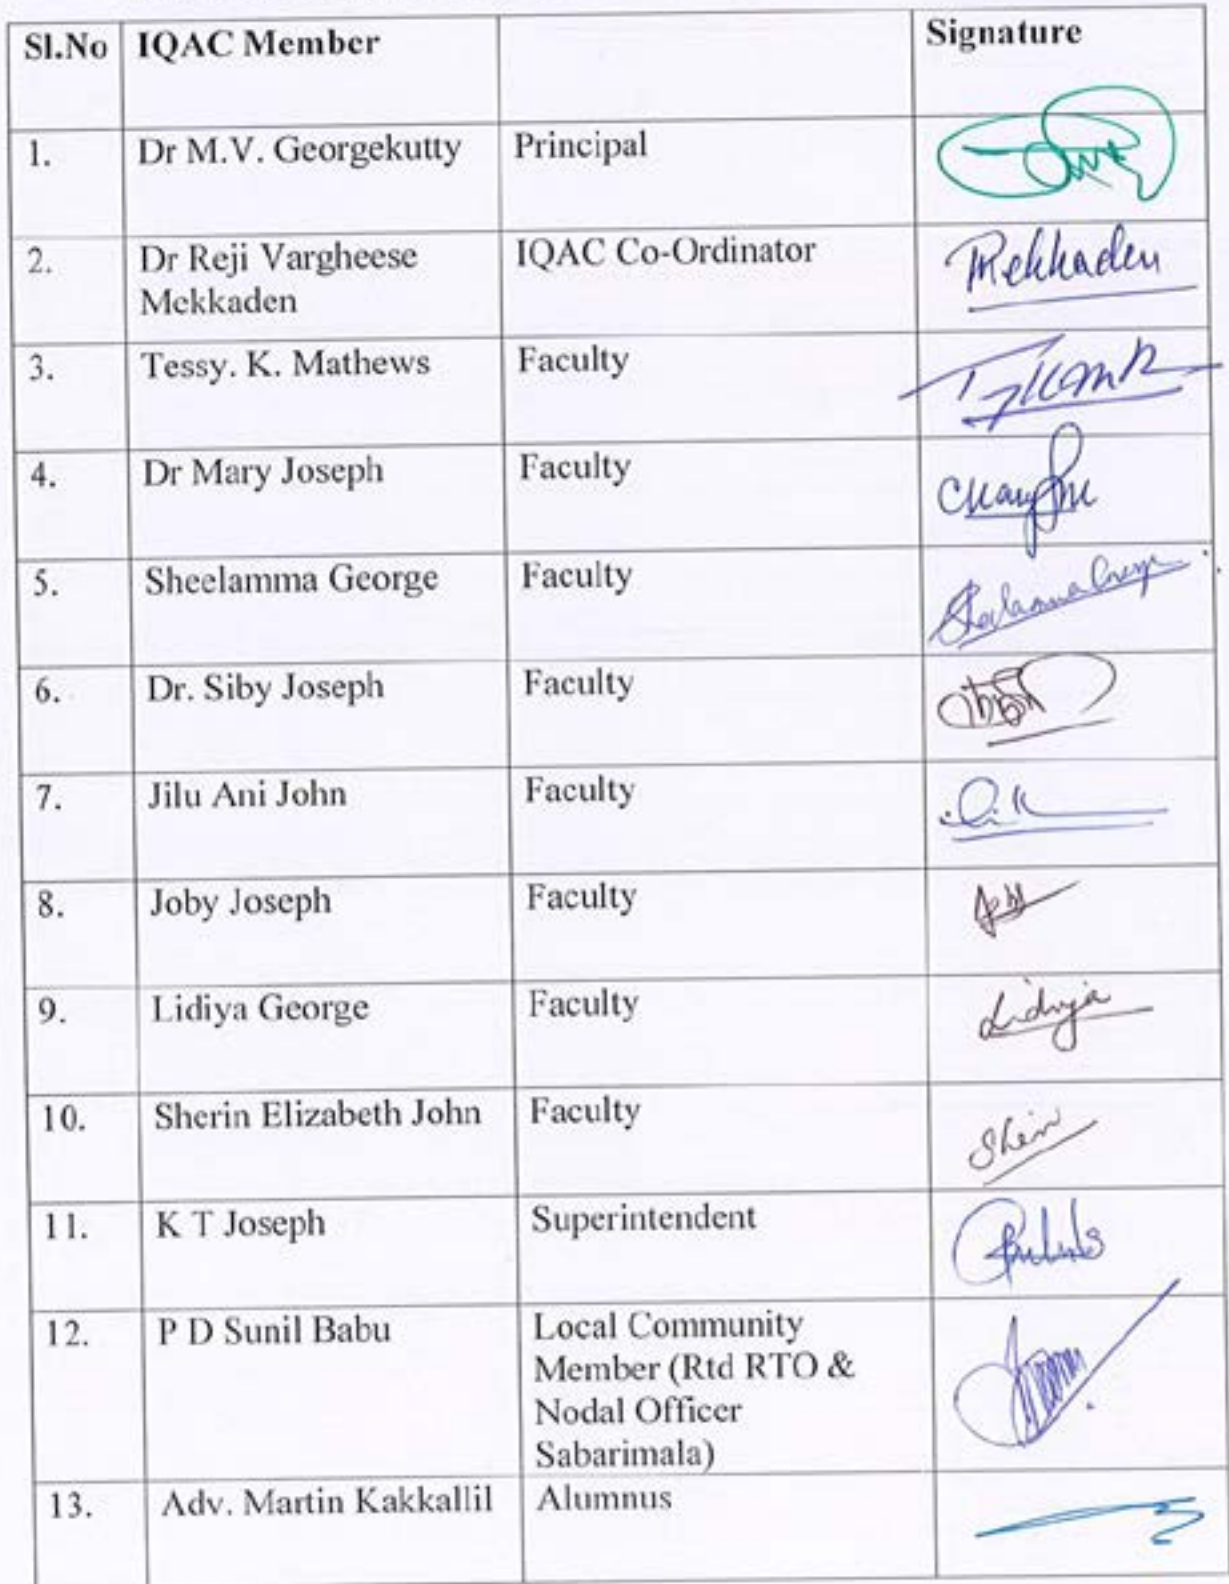 Sl.No IQAC Member Signature
1. Dr M.V. Georgekutty Principal
2. Dr Reji Vargheese IQAC Co-Ordinator Mekkaden
Mekkaden
3. Tessy. K. Mathews Faculty
4. Dr Mary Joseph Faculty
5. Sheelamma George Faculty Sheelamma George
6. Dr. Siby Joseph Faculty
7. Jilu Ani John Faculty
8. Joby Joseph Faculty
9. Lidiya George Faculty Lidiya
10. Sherin Elizabeth John Faculty
11. K T Joseph Superintendent
12. P D Sunil Babu Local Community
Member (Rtd RTO &
Nodal Officer
Sabarimala)
13. Adv. Martin Kakkallil Alumnus